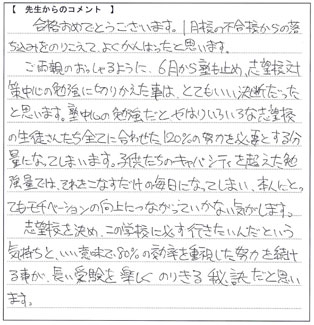 【 先生からのコメント 】
合格おめでとうございます。1月校の不合格からの落
ち込みをのりこえて、よくがんばったと思います。
ご両親のおっしゃるように、6月から塾も止め、志望校対
策中心の勉強に切りかえた事は、とてもいい決断だった
と思います。塾中心の勉強だとやはりいろいろな志望校
の生徒さんたち全てに合わせた120%の努力を必要とする分
量になってしまいます。子供たちのキャパシティを超えた勉
強量では、それをこなすだけの毎日になってしまい、本人にとっ
てもモチベーションの向上につながっていかない気がします。
志望校を決め、この学校に必ず行きたいんだという
気持ちと、いい意味で80%の効率を重視した努力を続け
る事が、長い受験を楽しくのりきる秘訣だと思い
ます。